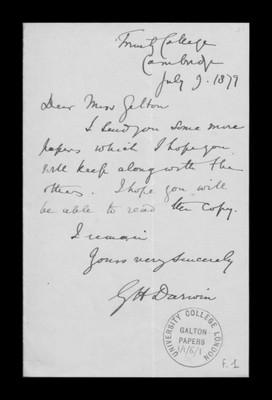 Trinity College
Cambridge
July 9. 1877
Dear Miss Galton
I send you some more
papers which I hope you
will keep along with the
others. I hope you will
be able to read the copy.
I remain
Yours very sincerely
G H Darwin
UNIVERSITY COLLEGE LONDON
GALTON
PAPERS
1/1/6/1
F. 1